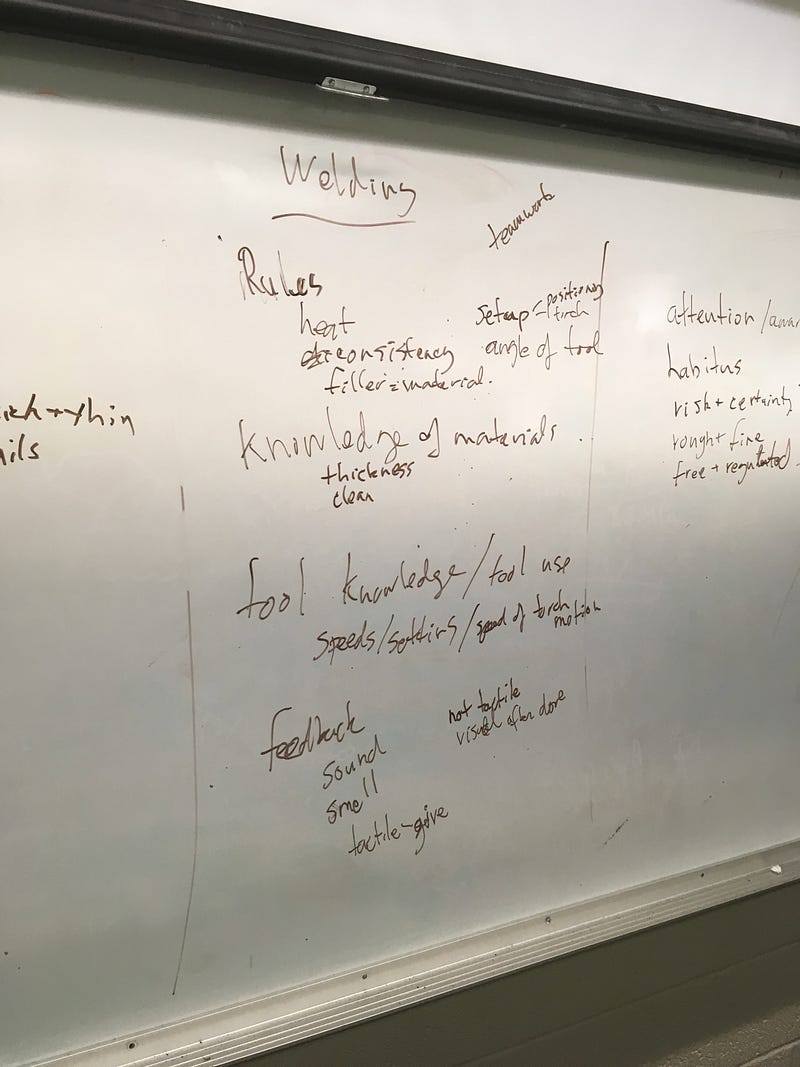 Welding
teamwork
Rules
heat
consistency
filler = material.
setup - positioning
torch
angle of tool
knowledge of materials
thickness
clean
tool knowledge / tool use
speeds / settings / speed of torch
motion
feedback
sound
smell
tactile - give
not tactile
visual after done
+ thin
attention /
habitus
risk + certainty
rough + fine
free + regulated